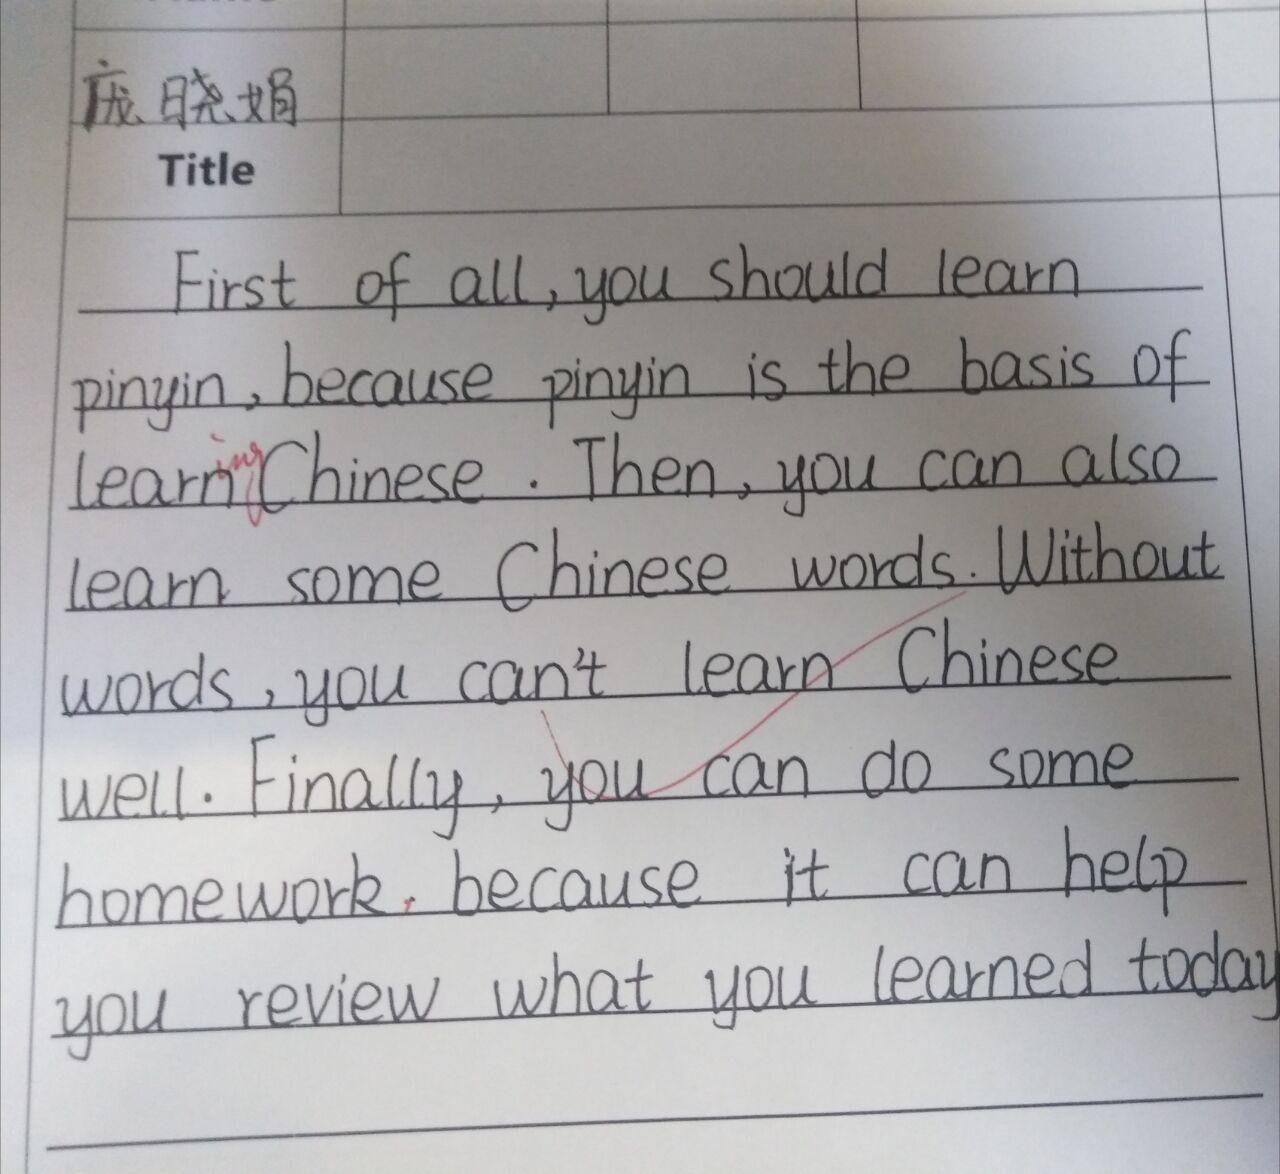 庞晓娟
Title
First of all, you should learn
pinyin, because pinyin is the basis of
learning Chinese. Then, you can also
learn some Chinese words. Without
words, you can't learn Chinese
well. Finally, you can do some
homework, because it can help
you review what you learned today